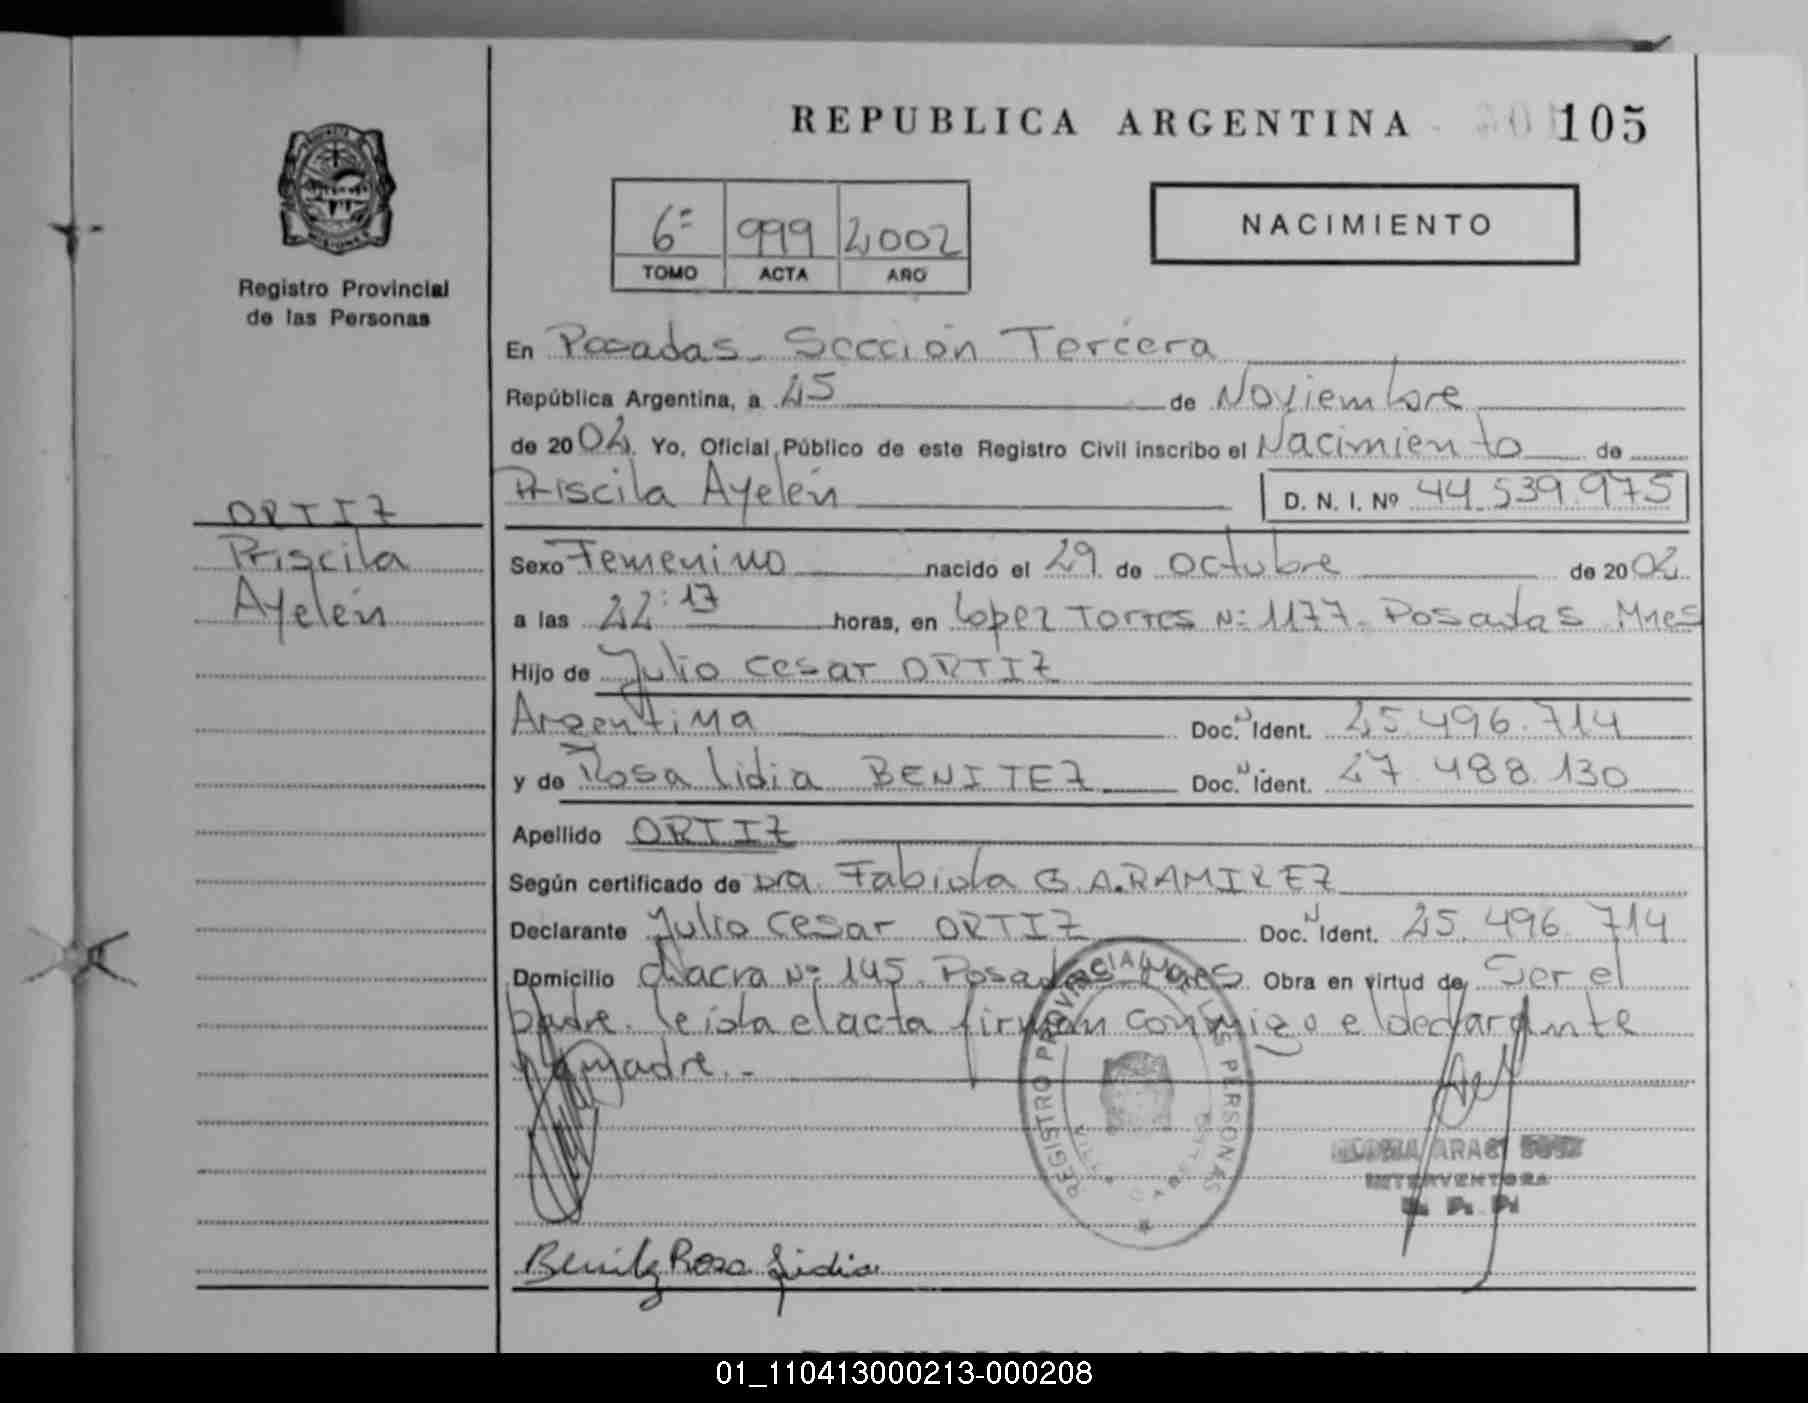 REPUBLICA ARGENTINA 105
MISIONES
Registro Provincial
de las Personas
6º 999 2002
TOMO ACTA AÑO
NACIMIENTO
En Posadas - Sección Tercera
República Argentina, a 25 de Noviembre
de 2002 Yo, Oficial Público de este Registro Civil inscribo el Nacimiento de
Priscila Ayelén D. N. I. Nº 44.539.975
ORTIZ
Priscila
Ayelén
Sexo Femenino nacido el 29 de octubre de 2002
a las 22:17 horas, en Lopez Torres Nº 1177. Posadas Mnes
Hijo de Julio Cesar ORTIZ
Argentina Doc. N Ident. 25.496.714
y de Rosa lidia BENITEZ Doc. N Ident. 27.488.130
Apellido ORTIZ
Según certificado de Dra. Fabiola G. A. RAMIREZ
Declarante Julio Cesar ORTIZ Doc. N Ident. 25.496.714
Domicilio chacra Nº 145. Posadas Mnes. Obra en virtud de Ser el
padre. leida el acta firman conmigo el declarante
y madre.-
REGISTRO PROVINCIAL DE LAS PERSONAS
INTERVENTORA
R. P. P.
Benitez Rosa Lidia
01_110413000213-000208